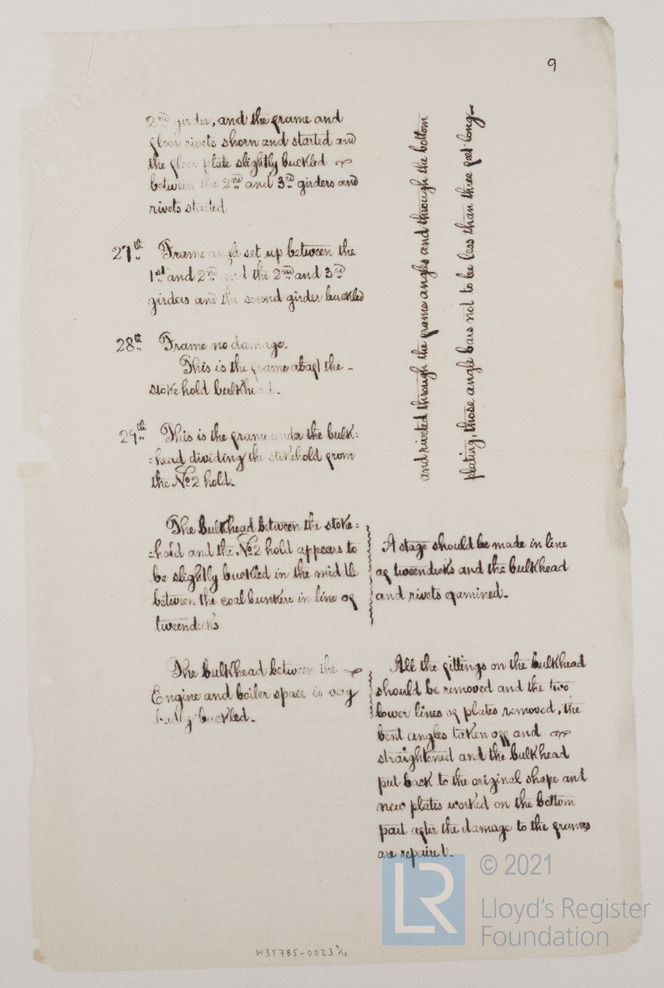 9
2nd girder, and the frame and
floor rivets shorn and started and
the floor plate slightly buckled
between the 2nd and 3rd girders and
rivets started
27th Frame angle set up between the
1st and 2nd and the 2nd and 3rd
girders and the second girder buckled
28th Frame no damage.
This is the frame abaft the
stoke hold bulkhead.
29th This is the frame under the bulk=
=head dividing the stokehold from
the No2 hold.
and riveted through the frame angles and through the bottom
plating, those angle bars not to be less than three feet long
The bulkhead between the stoke=
=hold and the No2 hold appears to
be slightly buckled in the middle
between the coal bunkers in line of
tweendecks
A stage should be made in line
of tweendecks and the bulkhead
and rivets examined.
The bulkhead between the
Engine and boiler space is very
badly buckled.
All the fittings on the bulkhead
should be removed and the two
lower lines of plates removed, the
bent angles taken off and
straightened and the bulkhead
put back to the original shape and
new plates worked on the bottom
part after the damage to the frames
are repaired.
© 2021
LR
Lloyd's Register
Foundation
W35785-0023 9/10